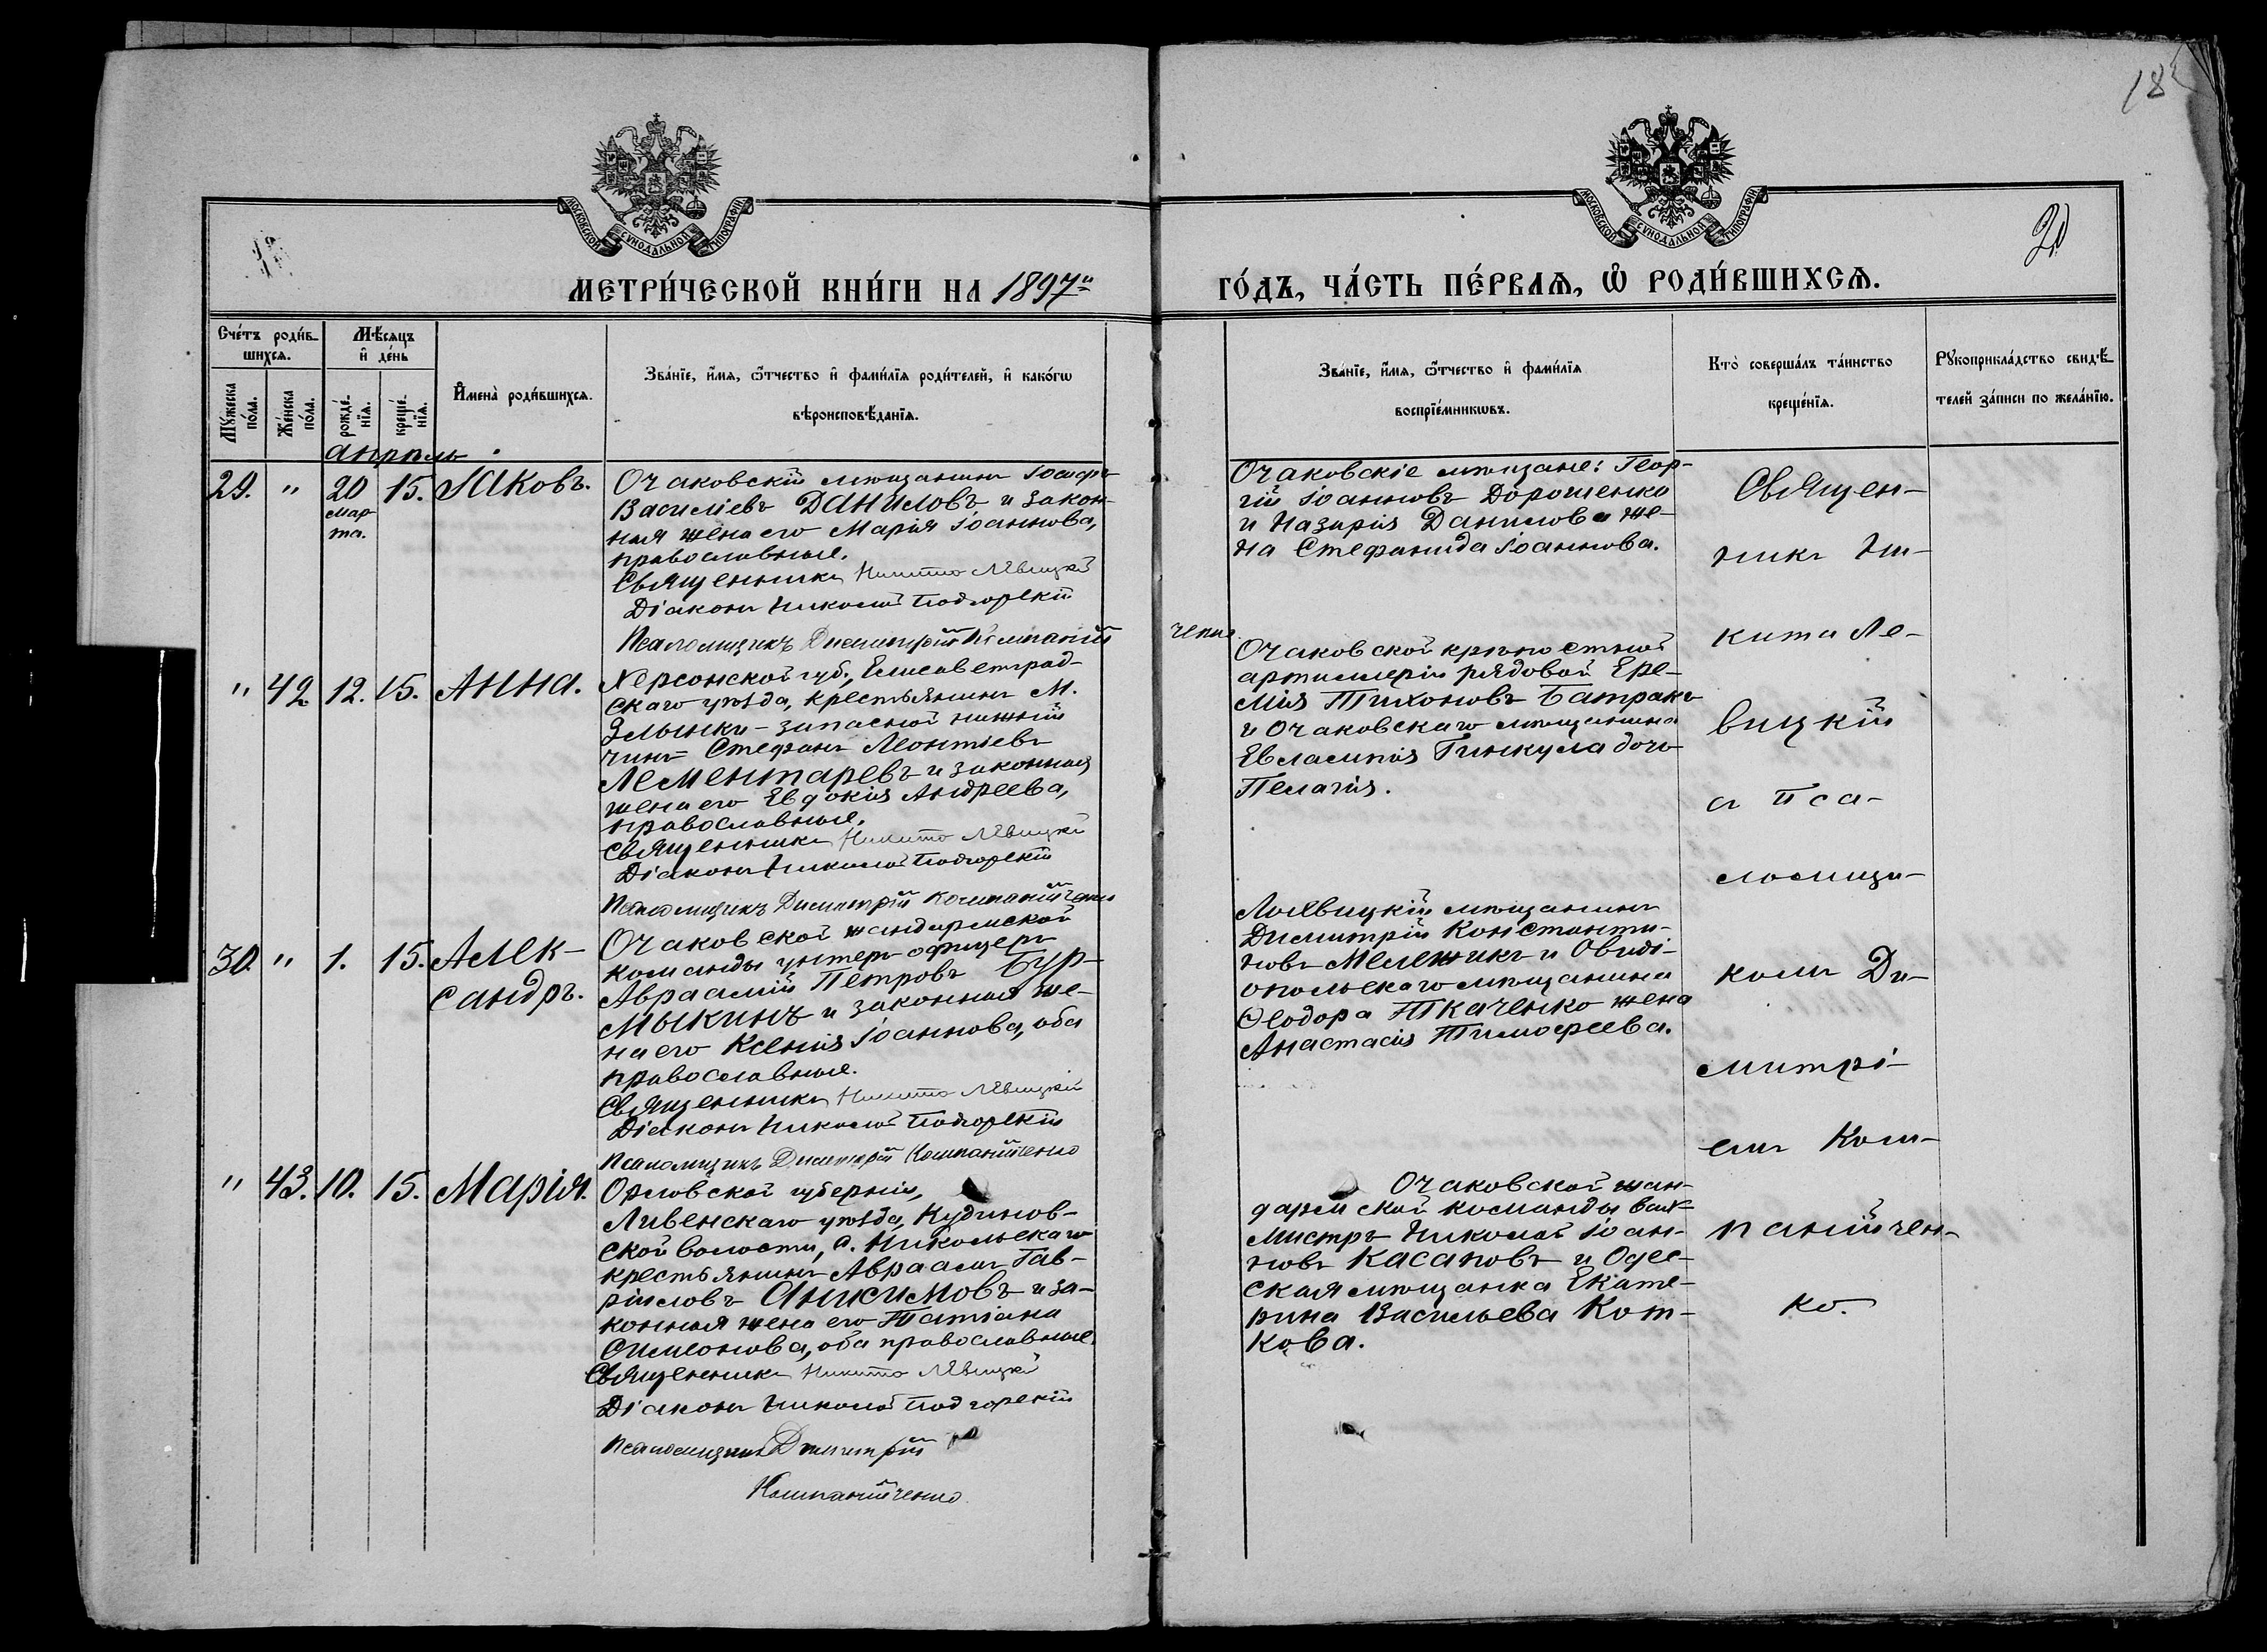 185
20
МОСКОВСКОЙ СѴНОДАЛЬНОЙ ТИПОГРАФІИ
МОСКОВСКОЙ СѴНОДАЛЬНОЙ ТИПОГРАФІИ
МЕТРИ́ЧЕСКОЙ КНИ́ГИ НА 1897й
ГО́ДЪ, ЧА́СТЬ ПЕ́РВАЯ, Ѽ РОДИ́ВШИХСЯ.
Сче́тъ роди́в-
шихся.
Мѣ́сяцъ
и҆ де́нь
Мꙋ́жеска по́ла.
Же́нска по́ла.
рожде́нїя.
креще́нїя.
И҆мена̀ роди́вшихся.
Зва́нїе, и҆́мя, ѻ҆́тчество и҆ фами́лїя роди́телей, и҆ како́гѡ
вѣроисповѣ́данїя.
Зва́нїе, и҆́мя, ѻ҆́тчество и҆ фами́лїя
воспрїе́мникѡвъ.
Кто̀ соверша́лъ та́инство
креще́нїя.
Рꙋкоприкла́дство свидѣ́-
телей за́писи по жела́нїю.
апрѣль.
29. " 20 марта. 15. Іаковъ.
Очаковскій мѣщанинъ Іосифъ
Василіевъ Даниловъ и закон-
ная жена его Марія Іоаннова,
православные.
Священникъ Никита Левицкій
Діаконъ Николай Подгорскій
Псаломщикъ Димитрій Компаній
ченко
Очаковскіе мѣщане: Геор-
гій Іоанновъ Дорошенко
и Назарія Данилова же-
на Стефанида Іоаннова.
" 42 12. 15. Анна.
Херсонской губ., Елисаветград-
скаго уѣзда, крестьянинъ м.
Злынки - запасной нижній
чинъ Стефанъ Леонтіевъ
Лементаревъ и законная
жена его Евдокія Андреева,
православные.
Священникъ Никита Левицкій
Діаконъ Николай Подгорскій
Псаломщикъ Димитрій Компанійченко
Очаковской крѣпостной
артиллеріи рядовой Ере-
мія Тихоновъ Батракъ
и Очаковскаго мѣщанина
Евлампія Гинкула дочь
Пелагія.
30. " 1. 15. Алек-
сандръ.
Очаковской жандармской
команды унтеръ-офицеръ
Авраамій Петровъ Бур-
мыкинъ и законная же-
на его Ксенія Іоаннова, оба
православные.
Священникъ Никита Левицкій
Діаконъ Николай Подгорскій
Псаломщикъ Димитрій Компанійченко
мѣщанинъ
Димитрій Константи-
новъ Мележикъ и Овиді-
опольскаго мѣщанина
Ѳеодора Ткаченко жена
Анастасія Тимофеева.
" 43. 10. 15. Марія.
Орловской губерніи,
Ливенскаго уѣзда, Кудинов-
ской волости, с. Никольскаго
крестьянинъ Авраамъ Гав-
ріиловъ Анисимовъ и за-
конная жена его Татіана
Симеонова, оба православные.
Священникъ Никита Левицкій
Діаконъ Николай Подгорскій
Псаломщикъ Димитрій
Компанійченко
Очаковской жан-
дармской команды вах-
мистръ Николай Іоан-
новъ Касаповъ и Одес-
ская мѣщанка Екате-
рина Васильева Кот-
кова.
Священ-
никъ Ни-
кита Ле-
вицкій
съ Пса-
ломщи-
комъ Ди-
митрі-
емъ Ком-
панійчен-
ко.